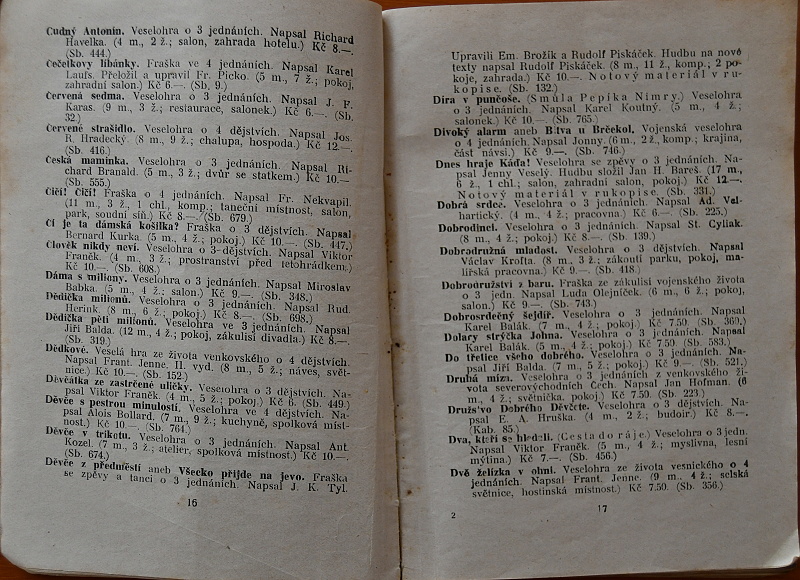 Cudný Antonín. Veselohra o 3 jednáních. Napsal Richard
Havelka. (4 m., 2 ž.; salon, zahrada hotelu.) Kč 8.—.
(Sb. 444.)
Čečetkovy líbánky. Fraška ve 4 jednáních. Napsal Karel
Laufs. Přeložil a upravil Fr. Picko. (5 m., 7 ž.; pokoj,
zahradní salon.) Kč 6.—. (Sb. 9.)
Červená sedma. Veselohra o 3 jednáních. Napsal J. F.
Karas. (9 m., 3 ž.; restaurace, salonek.) Kč 6.—. (Sb.
32.)
Červené strašidlo. Veselohra o 4 dějstvích. Napsal Jos.
R. Hradecký. (8 m., 9 ž.; chalupa, hospoda.) Kč 12.—.
(Sb. 416.)
Česká maminka. Veselohra o 3 jednáních. Napsal Ri-
chard Branald. (5 m., 3 ž.; dvůr se statkem.) Kč 10.—
(Sb. 555.)
Čiči! Čiči! Fraška o 4 jednáních. Napsal Fr. Nekvapil.
(11 m., 3 ž., 1 chl., komp.; taneční místnost, salon,
park, soudní síň.) Kč 8.—. (Sb. 679.)
Čí je ta dámská košilka? Fraška o 3 dějstvích. Napsal
Bernard Kurka. (5 m., 4 ž.; pokoj.) Kč 10.—. (Sb. 447.)
Člověk nikdy neví. Veselohra o 3 dějstvích. Napsal Viktor
Franěk. (4 m., 3 ž.; prostranství před letohrádkem.)
Kč 10.—. (Sb. 608.)
Dáma s miliony. Veselohra o 3 jednáních. Napsal Miroslav
Babka. (5 m., 4 ž.; salon.) Kč 9.—. (Sb. 348.)
Dědička milionů. Veselohra o 3 jednáních. Napsal Rud.
Herink. (8 m., 6 ž.; pokoj.) Kč 8.—. (Sb. 698.)
Dědička pěti milionů. Veselohra ve 3 jednáních. Napsal
Jiří Balda. (12 m., 4 ž.; pokoj, zákulisí divadla.) Kč 8.—.
(Sb. 319.)
Dědkové. Veselá hra ze života venkovského o 4 dějstvích.
Napsal Frant. Jenne. II. vyd. (8 m., 5 ž.; náves, svět-
nice.) Kč 10.—. (Sb. 152.)
Děvčátka ze zastrčené uličky. Veselohra o 3 dějstvích. Na-
psal Viktor Franěk. (4 m., 5 ž.; pokoj.) Kč 6. (Sb. 449.)
Děvče s pestrou minulostí. Veselohra ve 4 dějstvích. Na-
psal Alois Bollard. (7 m., 9 ž.; kuchyně, spolková míst-
nost.) Kč 10.—. (Sb. 764.)
Děvče v trikotu. Veselohra o 3 jednáních. Napsal Ant.
Kozel. (7 m., 3 ž.; atelier, spolková místnost.) Kč 10.—.
(Sb. 674.)
Děvče z předměstí aneb Všecko přijde na jevo. Fraška
se zpěvy a tanci o 3 jednáních. Napsal J. K. Tyl.
16
Upravili Em. Brožík a Rudolf Piskáček. Hudbu na nové
texty napsal Rudolf Piskáček. (8 m., 11 ž., komp.; 2 po-
koje, zahrada.) Kč 10.—. Notový materiál v ru-
kopise. (Sb. 132.)
Díra v punčoše. (Smůla Pepíka Nimry.) Veselohra
o 3 jednáních. Napsal Karel Koutný. (5 m., 4 ž.;
salonek.) Kč 10.—. (Sb. 765.)
Divoký alarm aneb Bitva u Brčekol. Vojenská veselohra
o 4 jednáních. Napsal Jonny. (6 m., 2 ž., komp.; krajina,
část návsi.) Kč 9.—. (Sb. 746.)
Dnes hraje Káďa! Veselohra se zpěvy o 3 jednáních. Na-
psal Jenny Veselý. Hudbu složil Jan H. Bareš. (17 m.,
6 ž., 1 chl.; salon, zahradní salon, pokoj.) Kč 12.—.
Notový materiál v rukopise. (Sb. 331.)
Dobrá srdce. Veselohra o 3 jednáních. Napsal Ad. Vel-
hartický. (4 m., 4 ž.; pracovna.) Kč 6.—. (Sb. 225.)
Dobrodinci. Veselohra o 3 jednáních. Napsal St. Cyliak.
(8 m., 4 ž.; pokoj.) Kč 8.—. (Sb. 139.)
Dobrodružná mladost. Veselohra o 3 dějstvích. Napsal
Václav Krofta. (8 m., 3 ž.; zákoutí parku, pokoj, ma-
lířská pracovna.) Kč 9.—. (Sb. 418.)
Dobrodružství z baru. Fraška ze zákulisí vojenského života
o 3 jedn. Napsal Luda Olejníček. (6 m., 6 ž.; pokoj,
salon.) Kč 9.—. (Sb. 743.)
Dobrosrdečný šejdíř. Veselohra o 3 jednáních. Napsal
Karel Balák. (7 m., 4 ž.; pokoj.) Kč 7.50. (Sb. 369.)
Dolary strýčka Johna. Veselohra o 3 jednáních. Napsal
Karel Balák. (5 m., 4 ž.; pokoj.) Kč 7.50. (Sb. 583.)
Do třetice všeho dobrého. Veselohra o 3 jednáních. Na-
psal Jiří Balda. (7 m., 5 ž.; pokoj.) Kč 9.—. (Sb. 521.)
Druhá míza. Veselohra o 3 jednáních z venkovského ži-
vota severovýchodních Čech. Napsal Jan Hofman. (6
m., 4 ž.; světnička, pokoj.) Kč 7.50. (Sb. 223.)
Družstvo Dobrého Děvčete. Veselohra o 3 dějstvích. Na-
psal E. A. Hruška. (4 m., 2 ž.; budoir.) Kč 8.—.
(Kab. 85.)
Dva, kteří se hledali. (Cesta do ráje.) Veselohra o 3 jedn.
Napsal Viktor Franěk. (5 m., 4 ž.; myslivna, lesní
mýtina.) Kč 7.—. (Sb. 456.)
Dvě želízka v ohni. Veselohra ze života vesnického o 4
jednáních. Napsal Frant. Jenne. (9 m., 4 ž.; selská
světnice, hostinská místnost.) Kč 7.50. (Sb. 356.)
2
17